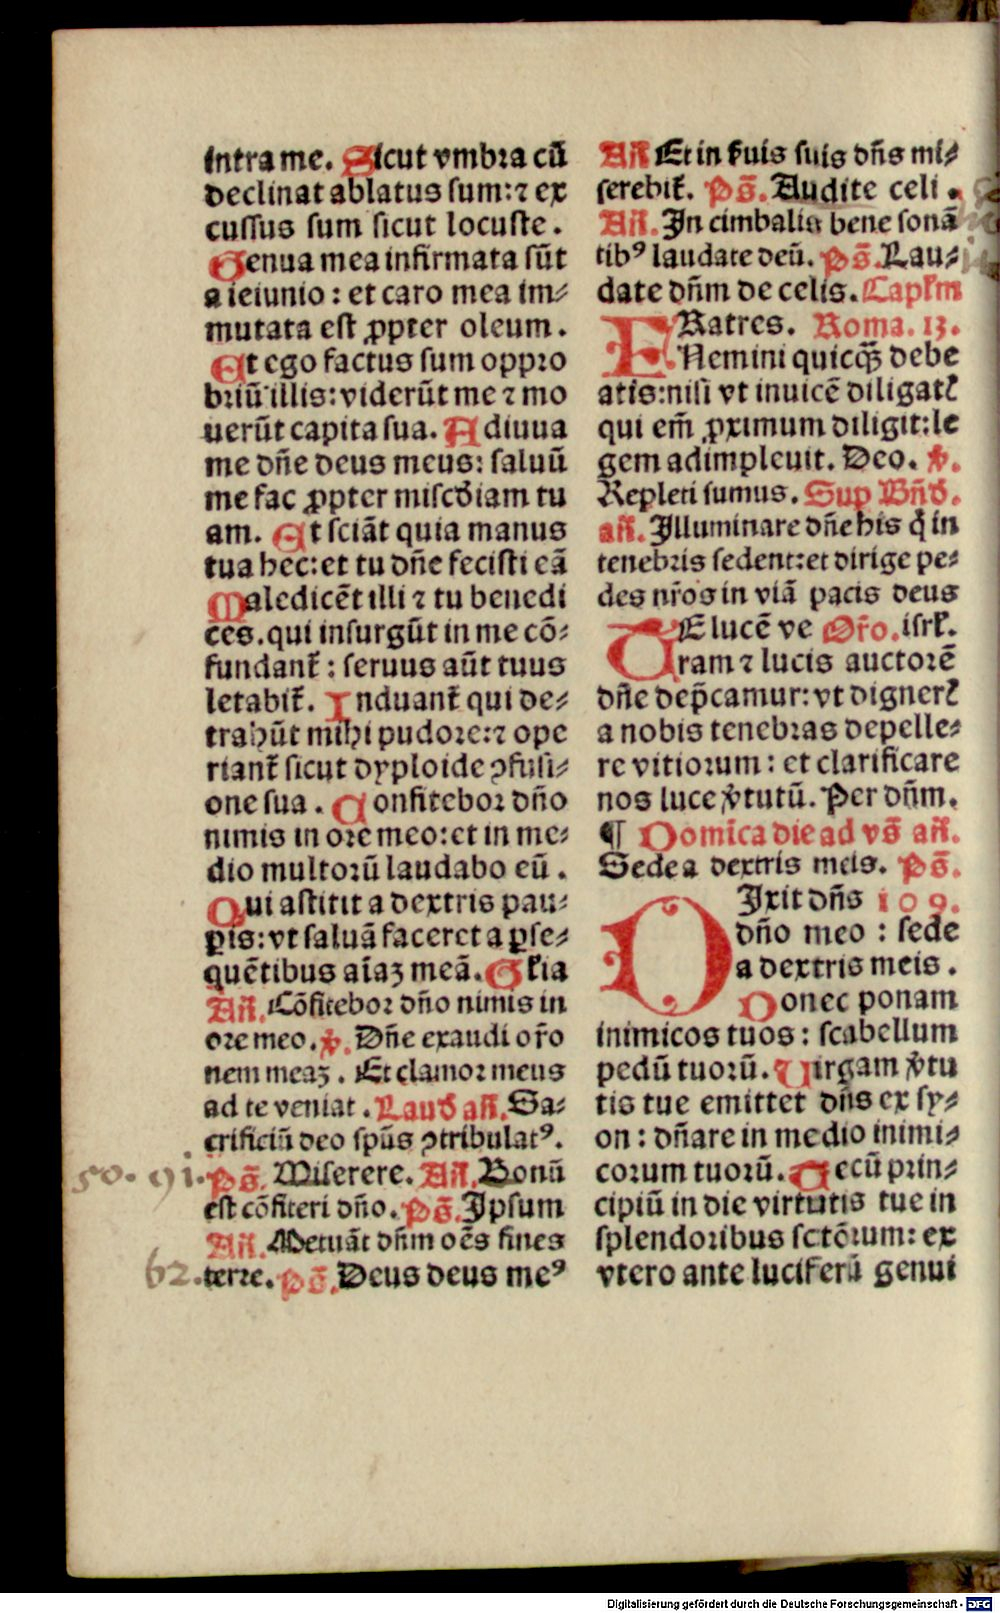 intra me. Sicut vmbra cū
declinat ablatus sum: ⁊ ex
cussus sum sicut locuste.
Genua mea infirmata sūt
a ieiunio: et caro mea im⸗
mutata est ꝓpter oleum.
Et ego factus sum oppro
briū illis: viderūt me ⁊ mo
uerūt capita sua. Adiuua
me dn̄e deus meus: saluū
me fac ꝓpter miscd̄iam tu
am. Et sciāt quia manus
tua hec: et tu dn̄e fecisti eā
Maledicēt illi ⁊ tu benedi
ces. qui insurgūt in me cō⸗
fundant̄: seruus aūt tuus
letabit̄. Induant̄ qui de⸗
trahūt mihi pudore: ⁊ ope
riant̄ sicut dyploide ꝯfusi⸗
one sua. Confitebor dn̄o
nimis in ore meo: et in me⸗
dio multorū laudabo eū.
Qui astitit a dextris pau⸗
ꝑis: vt saluā faceret a ꝑse⸗
quētibus aīaꝫ meā. Gl̄ia
Añ. Cōfitebor dn̄o nimis in
ore meo. ℣. Dn̄e exaudi or̄o
nem meaꝫ. Et clamor meus
ad te veniat. Laud̄ añ. Sa⸗
crificiū deo spūs ꝯtribulatꝰ.
50. 91. Ps̄. Miserere. Añ. Bonū
est cōfiteri dn̄o. Ps̄. Ipsum
Añ. Metuāt dn̄m oēs fines
62. terre. Ps̄. Deus deus meꝰ
Añ Et in suis dn̄s mi⸗
serebit̄. Ps̄. Audite celi.
Añ. In cimbalis bene sonā
tibꝰ laudate deū. Ps̄. Lau⸗
date dn̄m de celis. Capl̄m
FRatres. Roma. 13.
Nemini quicqꝫ̄ debe
atis: nisi vt inuicē diligat̄
qui em̄ ꝓximum diligit: le
gem adimpleuit. Deo. ℣.
Repleti sumus. Sup Bn̄d̄.
añ. Illuminare dn̄e his q̄ in
tenebris sedent: et dirige pe⸗
des nr̄os in viā pacis deus
TE lucē ve Or̄o. isrl̄.
ram ⁊ lucis auctorē
dn̄e dep̄camur: vt digner̄
a nobis tenebras depelle⸗
re vitiorum: et clarificare
nos luce v̄tutū. Per dn̄m.
¶ Domīca die ad vs̄ añ.
Sede a dextris meis. Ps̄.
DIxit dn̄s 109.
dn̄o meo: sede
a dextris meis.
Donec ponam
inimicos tuos: scabellum
pedū tuorū. Uirgam v̄tu
tis tue emittet dn̄s ex sy⸗
on: dn̄are in medio inimi⸗
corum tuorū. Tecū prin⸗
cipiū in die virtutis tue in
splendoribus sctōrum: ex
vtero ante luciferū genui
Digitalisierung gefördert durch die Deutsche Forschungsgemeinschaft - DFG